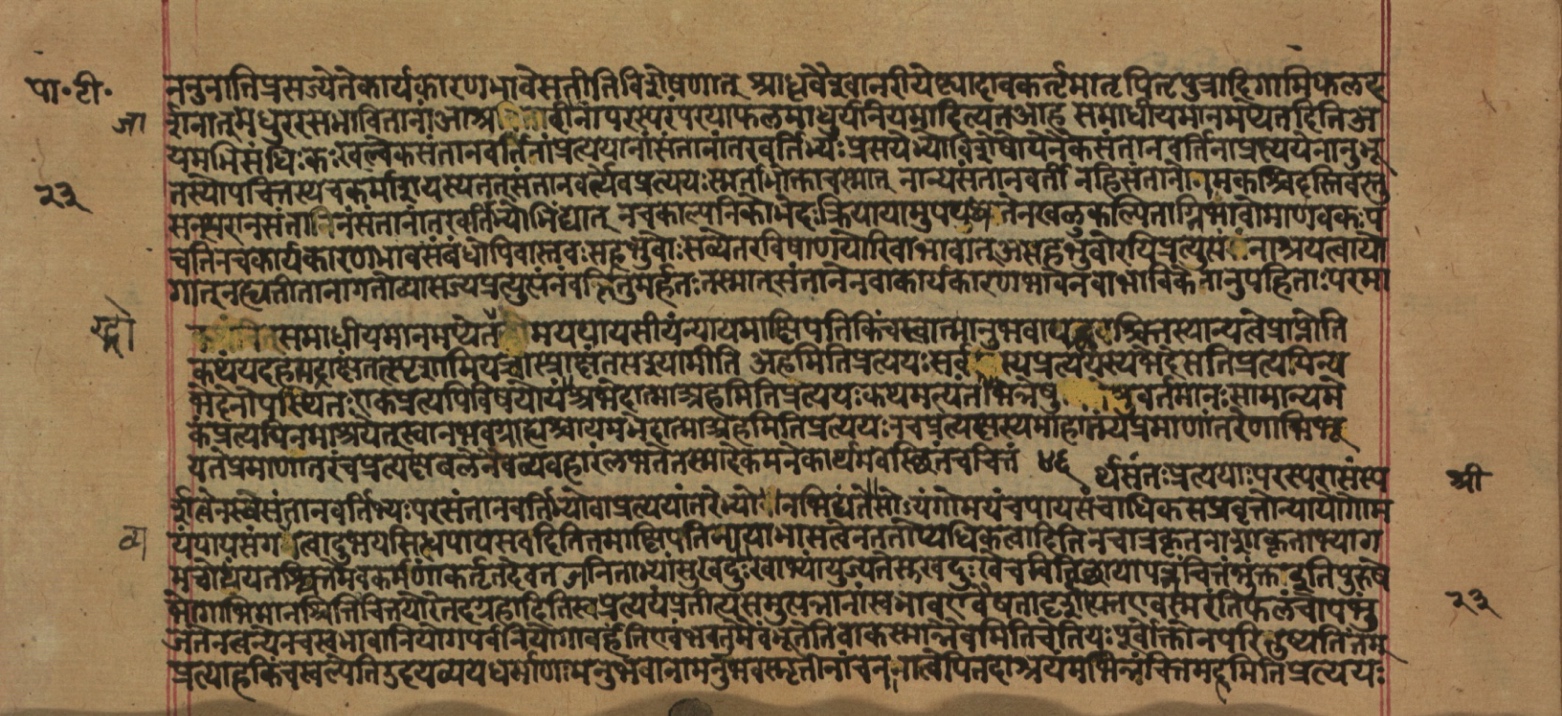 पा॰टी॰
ननुनातिप्रसज्येतेकार्यकारणभावेसतीतिविशेषणात् श्राद्धवैश्वानरीयेष्ट्यादावकर्तृमातृपितृपुत्रादिगामिफलद
र्शनात्मधुररसभावितानांआम्र दीनांपरस्परंपरयाफलमाधुर्यनियमादित्यतआह समाधीयमानमप्येतदितिअ
जा
यमभिसंधिःकःखल्वेकसंतानवर्तिनांप्रत्ययानांसंतानांतरवर्तिभ्यःप्रत्ययेभ्योविशेषोयेनैकसंतानवर्तिनाप्रत्ययेनानुभू
तस्योपचितस्यचकर्माशयस्यतत्संतानवर्त्येवप्रत्ययःस्मर्ताभोक्ताचस्यात् नान्यसंतानवर्ती नहिसंतानोनामकश्चिदस्तिवस्तु
२३
सन्यएनंसंता नंसंतानांतरवर्तिभ्योभिंद्यात् नचकाल्पनिकोभेदःक्रियायामुपपद्यते नखलुकल्पिताग्निभावोमाणवकःप
चतिनचकार्यकारणभावसंबंधोपिवास्तवःसहभुवोःसव्येतरविषाणयोरिवाभावात्असहभुवोरपिप्रत्युत्पं नाश्रयत्वायो
गात्नह्यतीतानागतौव्यासज्यप्रत्युत्पंनंवर्तितुमर्हतःतस्मात्संतानेनवाकार्यकारणभावेनवास्वाभाविकेनानुपहिताःपरमा
र्थसंतःप्रत्ययाःपरस्परासंस्प
श्री
र्शित्वेनस्वसंतानवर्तिभ्यःपरसंतानवर्तिभ्योवाप्रत्ययांतरेभ्यो नभिद्यंतेसोऽयंगोमयंचपायसंचाधिकृत्यप्रवृत्तोन्यायोगोम
यंपायसंग त्वादुभयसिद्धपायसवदितितमाक्षिपतिन्यायाभासत्वेनततोप्यधिकत्वादितिनचात्रकृतनाशाकृताभ्याग
व्य
मचोद्यंयतश्चित्तमेवकर्मणांकर्तृतदेवतज्जनिताभ्यांसुखदुःखाभ्यांयुज्यतेसुखदुःखेचचितिच्छायापन्नंचित्तंभुंक्तेइतिपुरुषे
भोगाभिमानश्चितिचित्तयोरभेदग्रहादितिस्वप्रत्ययंप्रतीत्यसमुत्पन्नानांस्वभावएवैषतादृशोयत्तएवस्मरंतिफलंचोपभुं
२३
जतेनत्वन्येनचस्वभावानियोगपर्यनुयोगावर्हंतिएवंभवतुमैवंभूततिवाकस्मान्नैवमितिचेतियःपूर्वोक्तेनपरितुष्यतितं
प्रत्याहकिंचस्वात्मेतिउदयव्ययधर्माणामनुभवानामनुभवस्मृतीनांचनानात्वेपितदाश्रयमभिन्नंचित्तमहमितिप्रत्ययः
समाधीयमानमप्येत मयपायसीयंन्यायमाक्षिपतिकिंचस्वात्मानुभवापह्नवश्चित्तस्यान्यत्वेप्राप्नोति
कथंयदहमद्राक्षंतत्स्पृशामियच्चास्प्राक्षंतत्पश्यामीति अहमितिप्रत्ययःसर्व स्यप्रत्ययस्यभेदेसतिप्रत्ययिन्य
भेदेनोपस्थितःएकप्रत्ययविषयोयंअभेदात्माअहमितिप्रत्ययःकथमत्यंतभिन्नेषु वर्तमानःसामान्यमे
कंप्रत्ययिनमाश्रयेतस्वानुभवग्राह्यश्चायमभेदात्माअहमितिप्रत्ययःनचप्रत्यक्षस्यमाहात्म्यंप्रमाणांतरेणाभिभू
यतेप्रमाणांतरंचप्रत्यक्षबलेनैवव्यवहारंलभतेतस्मादेकमनेकार्थमवस्थितंचचित्तं